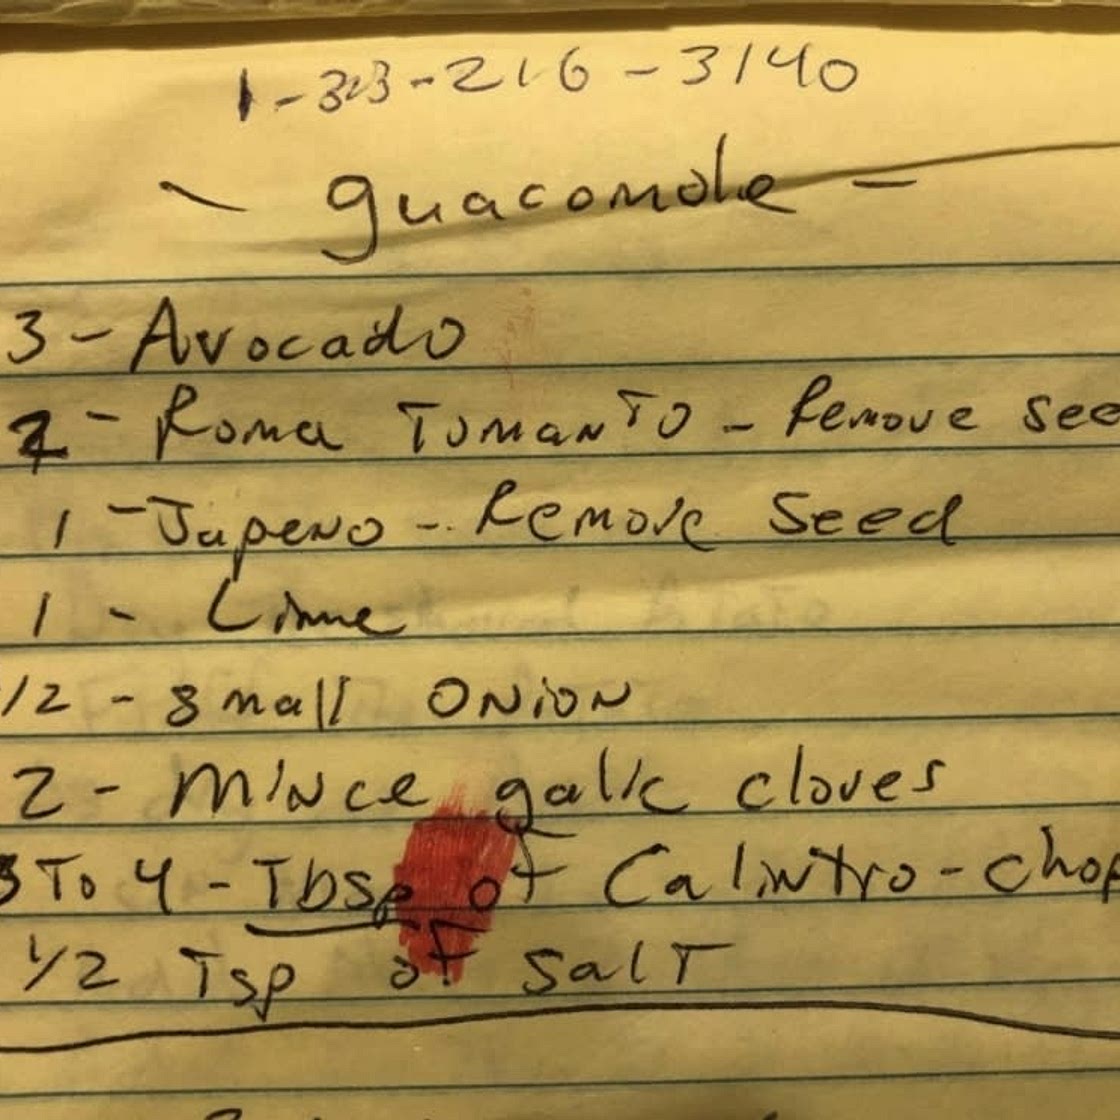 1-323-216-3140
- guacomole -
3 - Avocado
2 - Roma Tomanto - Remove see
1 - Japeno - Remove Seed
1 - Lime
1/2 - small onion
2 - mince galic cloves
3 To 4 - Tbsp of Calintro - chop
1/2 Tsp of salt